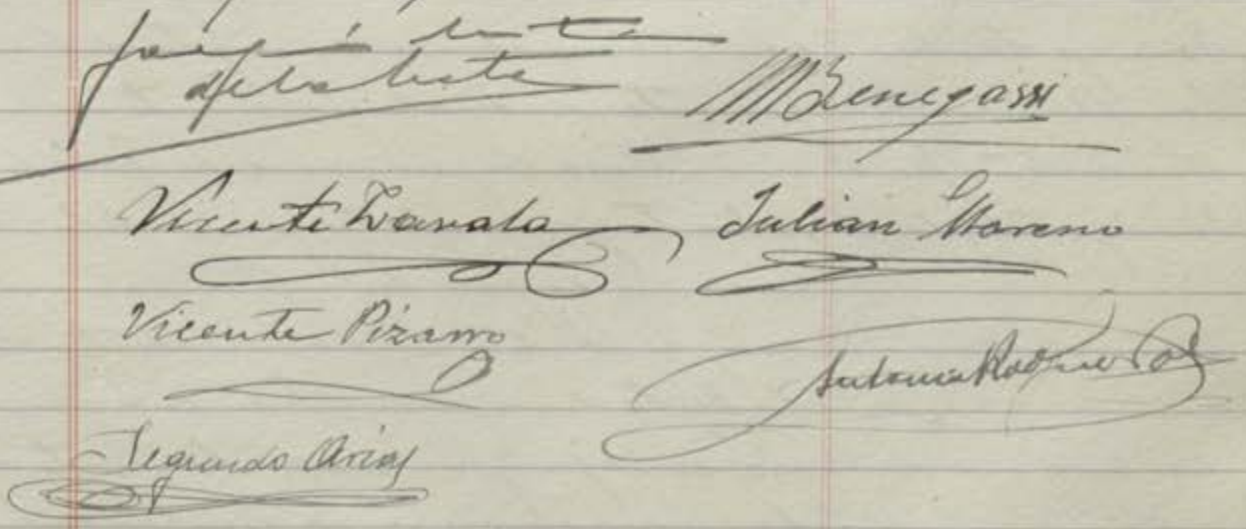 M Benegassi
Vicente Zavala Julian Moreno
Vicente Pizarro
Antonio
Segundo Arias